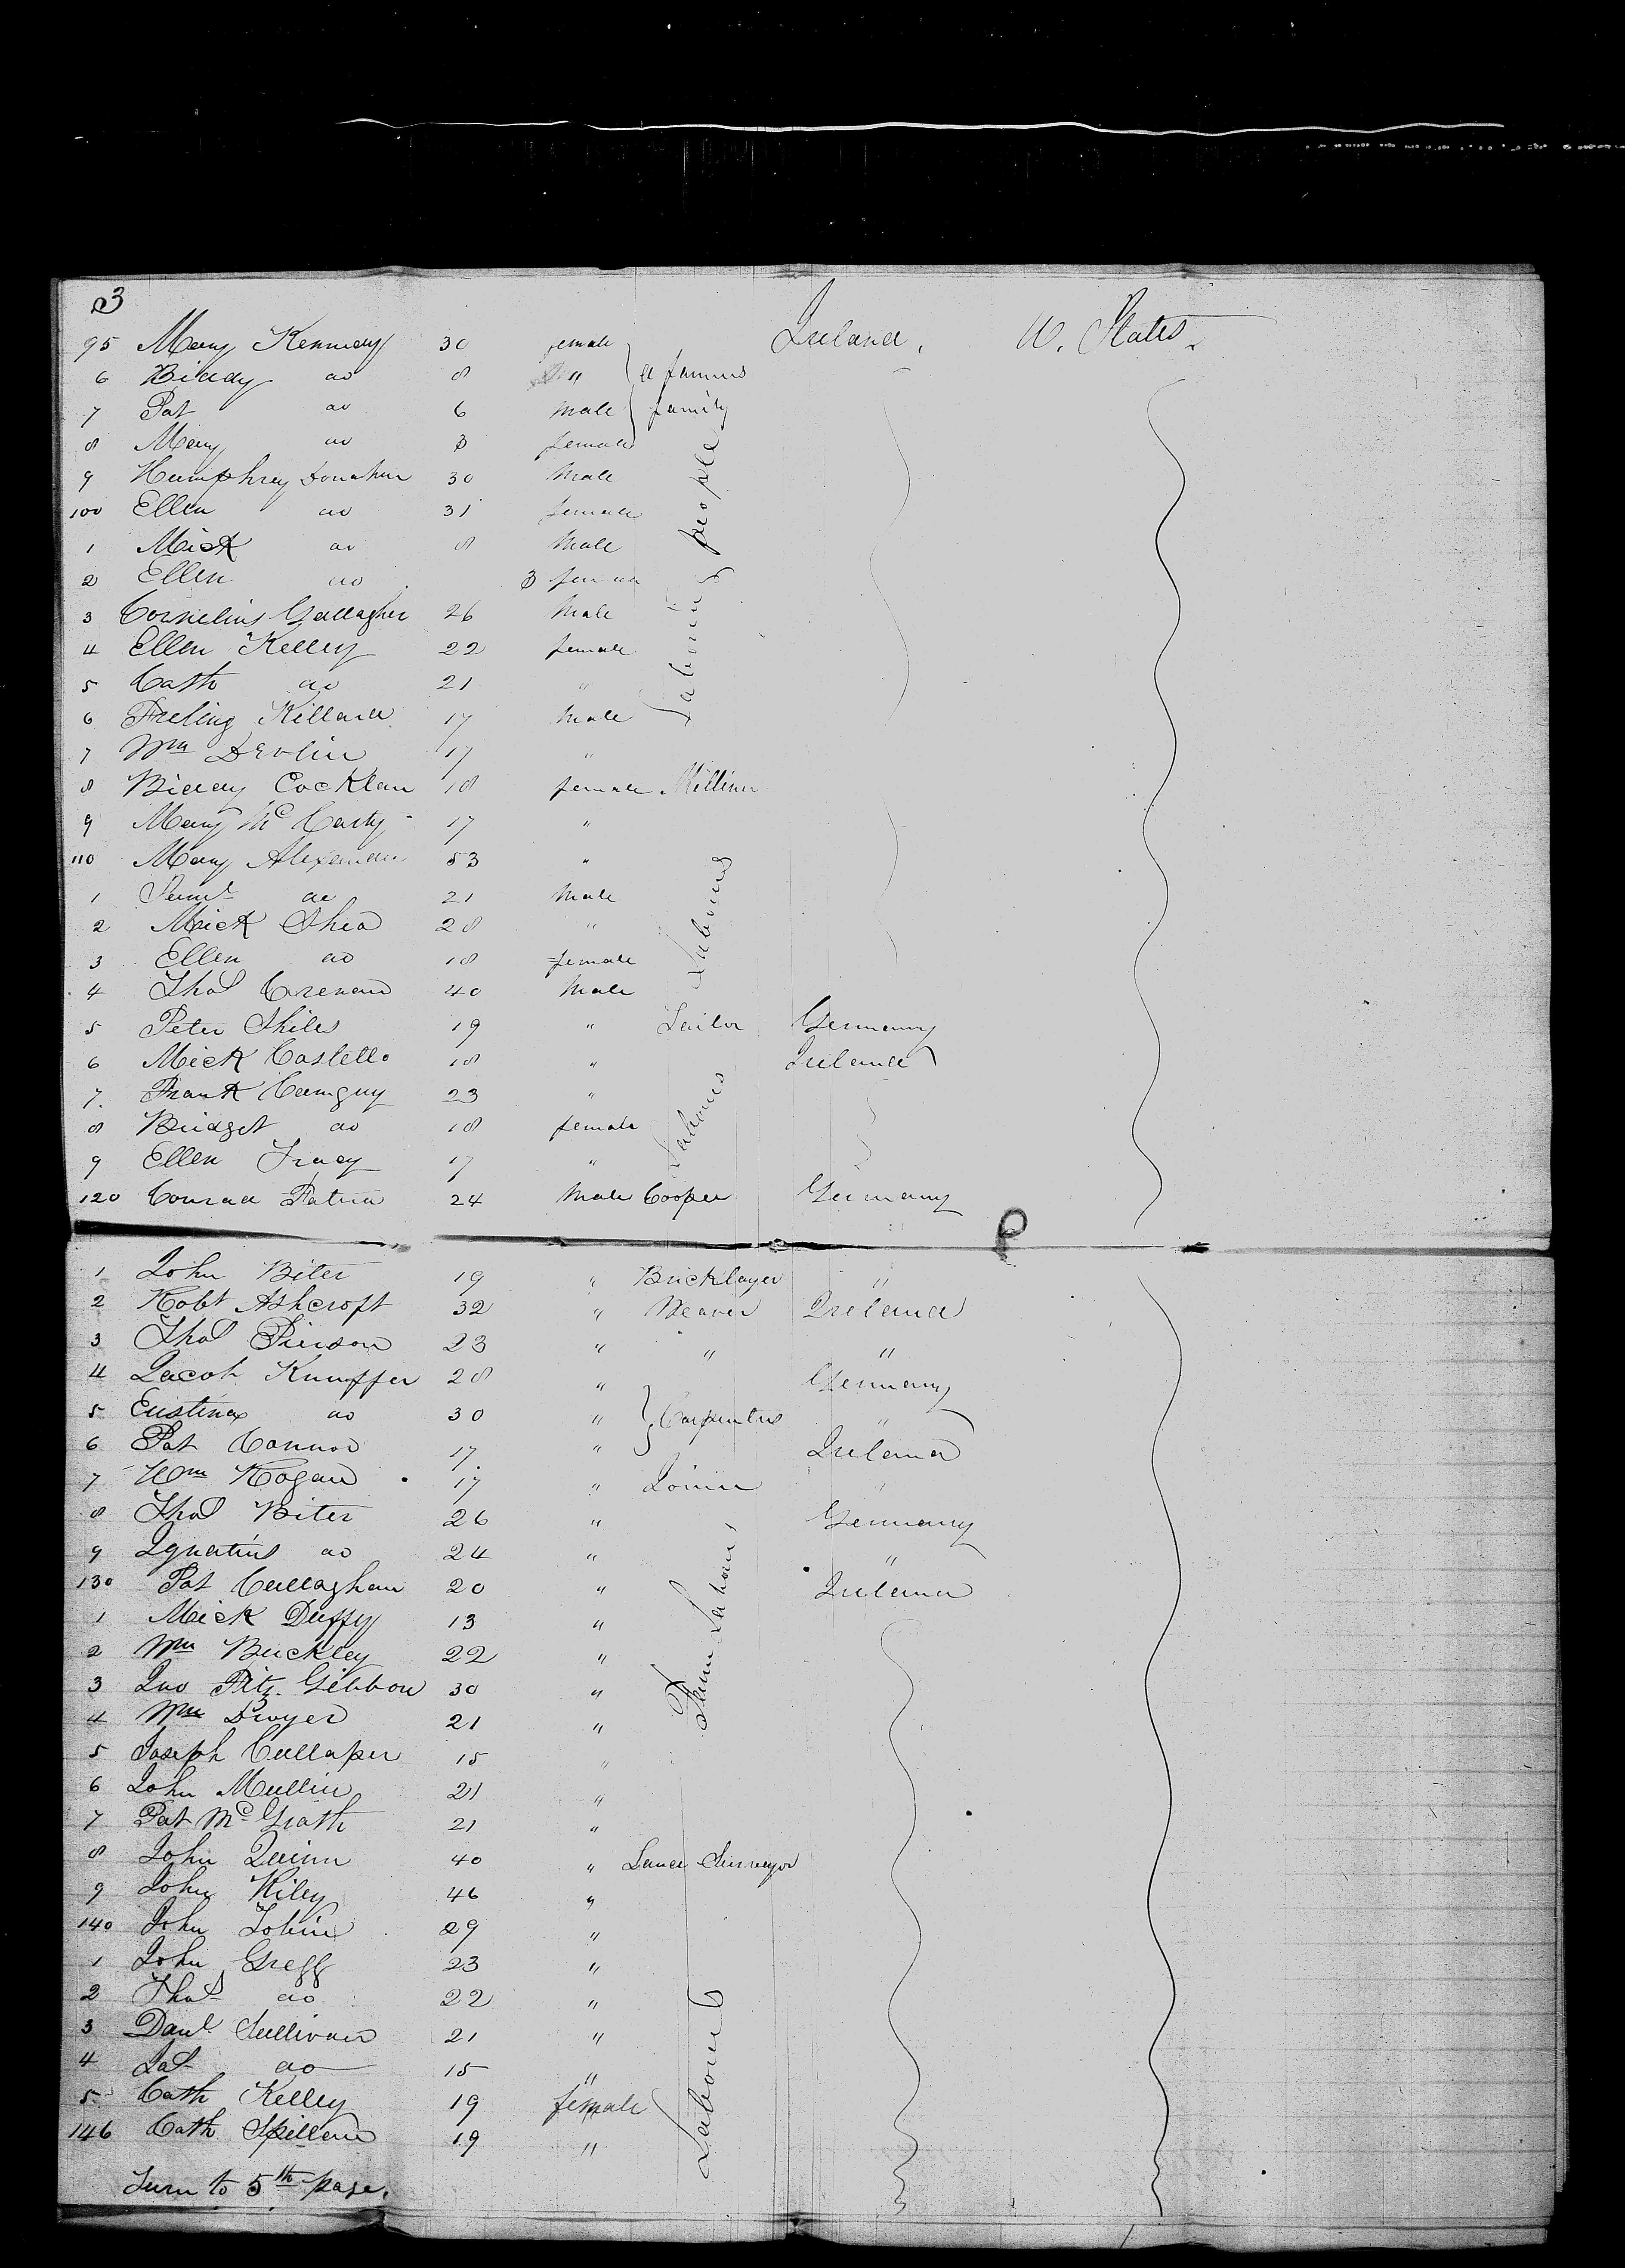 3
95 Mary Kennedy 30 female Ireland, U. States.
6 Biddy do 8 " a farmers
7 Pat do 6 Male family
8 Mary do 3 female
9 Humphrey Donahue 30 Male
100 Ellen do 31 female
1 Mick do 8 Male
2 Ellen do 3 female
Labouring people
3 Cornelius Gallagher 26 Male
4 Ellen Kelley 22 female
5 Cath do 21 "
6 Killard 17 Male
7 Wm Devlin 17 "
8 Biddy Cocklan 18 female Milliner
9 Mary McCarty 17 "
110 Mary Alexander 53 "
1 Saml do 21 Male
2 Mick Shea 28 "
3 Ellen do 18 female
Labourers
4 Thos Crenan 40 Male
5 Peter Shiles 19 " Tailor Germany
6 Mick Costello 18 " Ireland
7 Frank 23 "
8 Bridget do 18 female
Labourers
9 Ellen Tracy 17 "
120 Conrad 24 Male Cooper Germany
1 John Biter 19 " Bricklayer "
2 Robt Ashcroft 32 " Weaver Ireland
3 Thos Pierson 23 " " "
4 Jacob Knupffer 28 " Germany
5 do 30 " Carpenters "
6 Pat Connor 17 " Ireland
7 Wm Hogan 17 " Joiner "
8 Thos Biter 26 " Germany
9 Ignatius do 24 " "
130 Pat Callaghan 20 " Ireland
1 Mick Duffy 13 "
2 Wm Buckley 22 "
Farm Labours
3 Jno Fitz-Gibbon 30 "
4 Wm Dwyer 21 "
5 Joseph 15 "
6 John Mullin 21 "
7 Pat McGrath 21 "
8 John Quinn 40 " Land Surveyor
9 John Kiley 46 "
140 John Tobin 29 "
1 John Gregg 23 "
2 Thos do 22 "
3 Danl Sullivan 21 "
4 Jas do 15 "
5 Cath Kelley 19 female
146 Cath Spillane 19 "
Turn to 5th page.